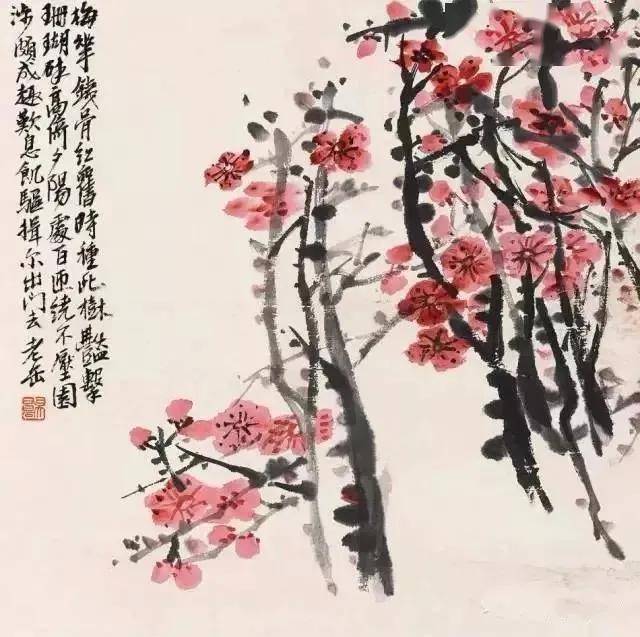 梅華鐵骨紅舊時種此樹豔擊
珊瑚碎高倚夕陽處百匝繞不厭園
涉頗成趣歎息飢驅揖尔出門去老缶